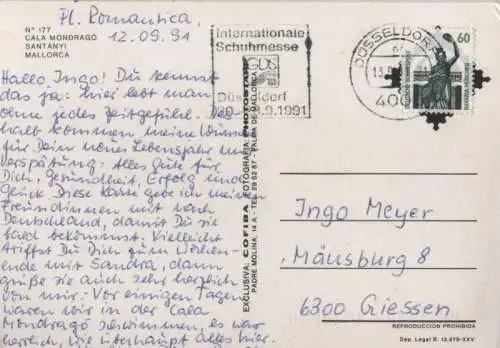 Pl. Romantica,
12.09.91
Nº 177
CALA MONDRAGÓ
SANTANYI
MALLORCA
Hallo Ingo! Du kennst
das ja: hier lebt man
ohne jedes Zeitgefühl. Des-
halb kommen meine Wünsche
für Dein neues Lebensjahr mit
Verspätung: Alles Gute für
Dich, Gesundheit, Erfolg und
Glück. Diese Karte gebe ich meinen
Freundinnen mit nach
Deutschland, damit Du sie
bald bekommst. Vielleicht
triffst Du Dich zum Wochen-
ende mit Sandra, dann
grüße sie auch sehr herzlich
von mir. Vor einigen Tagen
waren wir in der Cala
Mondragó schwimmen, es war
herrlich, wie überhaupt alles hier.
EXCLUSIVA: COFIBA FOTOGRAFIA: PHOTOSTAR
PADRE MOLINA, 14 A - TEL. 29 52 87 - PALMA DE MALLORCA
Internationale
Schuhmesse
GDS
Düsseldorf
9.1991
DÜSSELDORF
13.
400
60
MÜNCHEN
Ingo Meyer
Mäusburg 8
6300 Giessen
REPRODUCCION PROHIBIDA
Dep. Legal B. 13.879-XXV